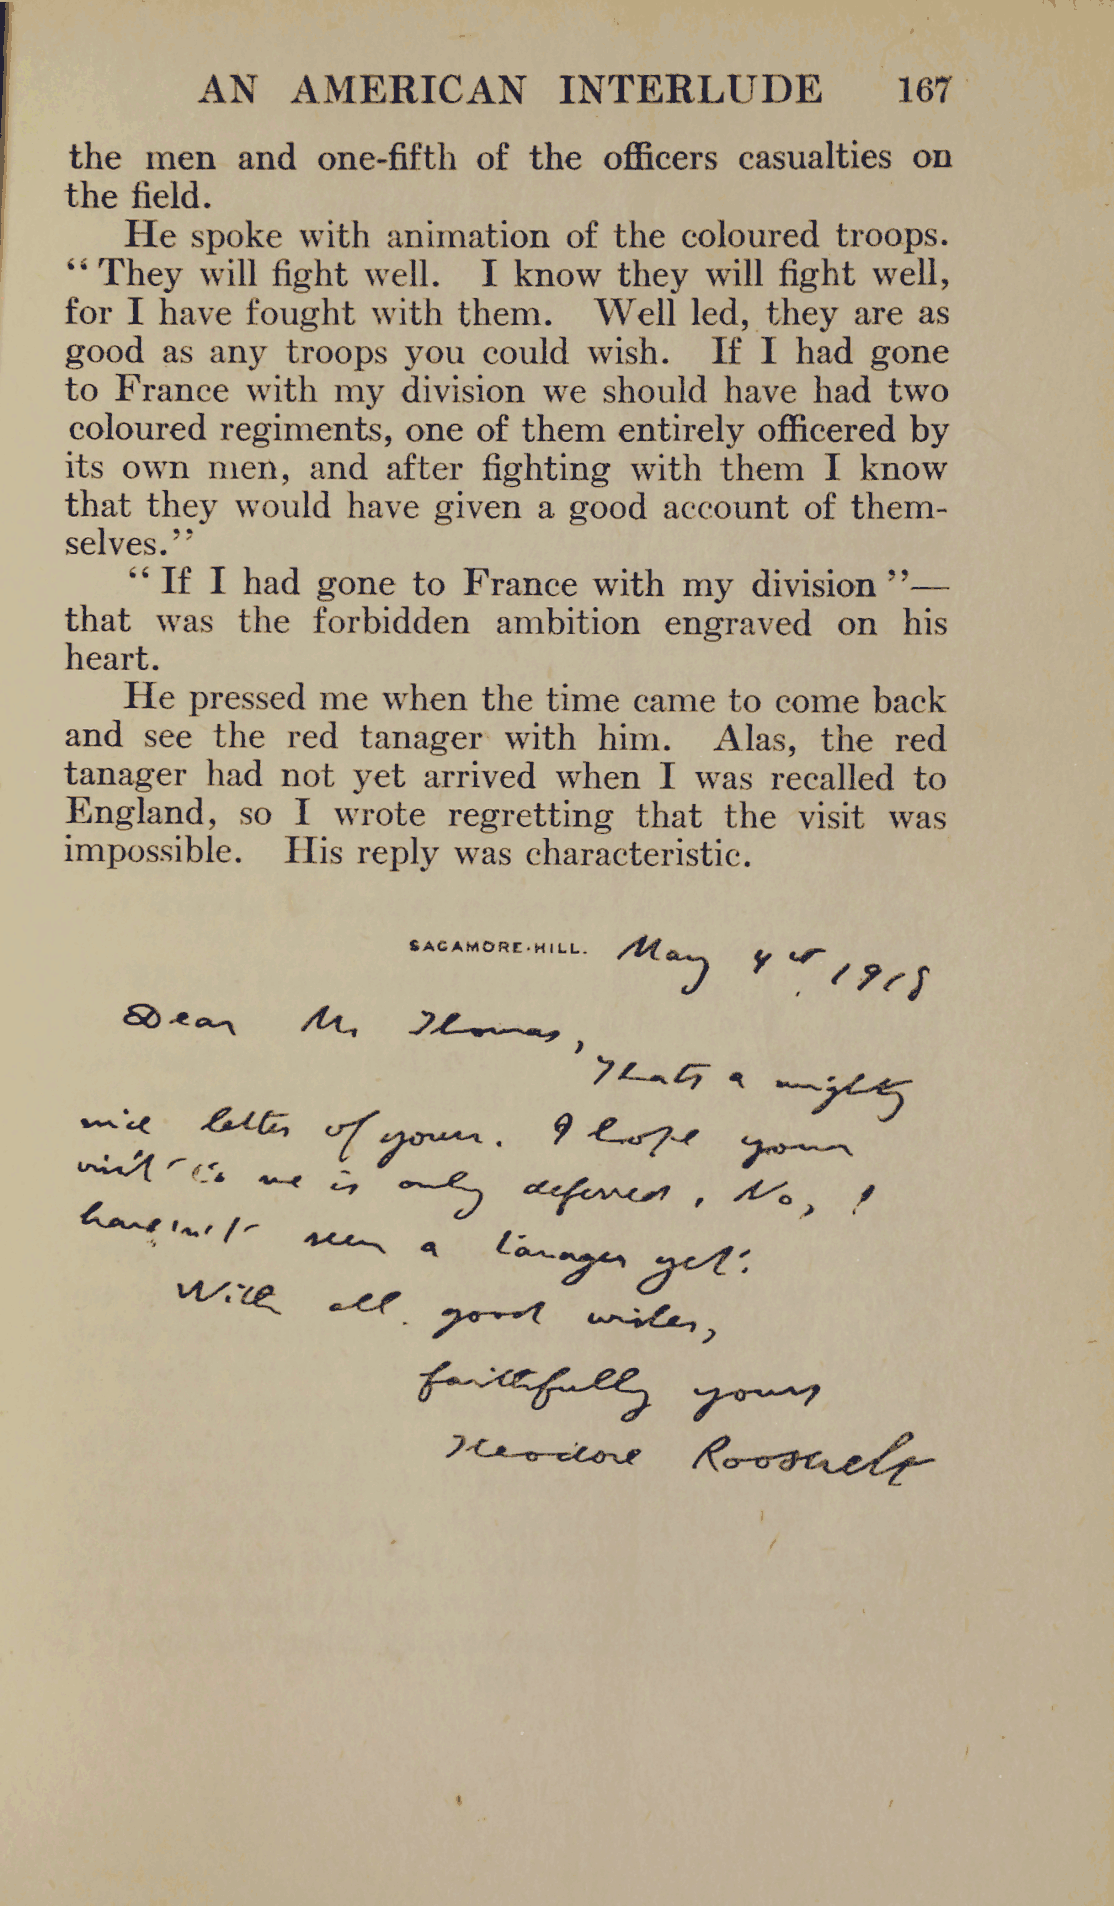 AN AMERICAN INTERLUDE 167
the men and one-fifth of the officers casualties on
the field.
He spoke with animation of the coloured troops.
“ They will fight well. I know they will fight well,
for I have fought with them. Well led, they are as
good as any troops you could wish. If I had gone
to France with my division we should have had two
coloured regiments, one of them entirely officered by
its own men, and after fighting with them I know
that they would have given a good account of them-
selves.”
“ If I had gone to France with my division ”—
that was the forbidden ambition engraved on his
heart.
He pressed me when the time came to come back
and see the red tanager with him. Alas, the red
tanager had not yet arrived when I was recalled to
England, so I wrote regretting that the visit was
impossible. His reply was characteristic.
SAGAMORE-HILL. May 1918
Dear Mr Thomas,
Thats a mighty
nice letter of yours. I hope your
visit to me is only deferred. No, I
haven't seen a tanager yet.
With all good wishes,
faithfully yours
Theodore Roosevelt